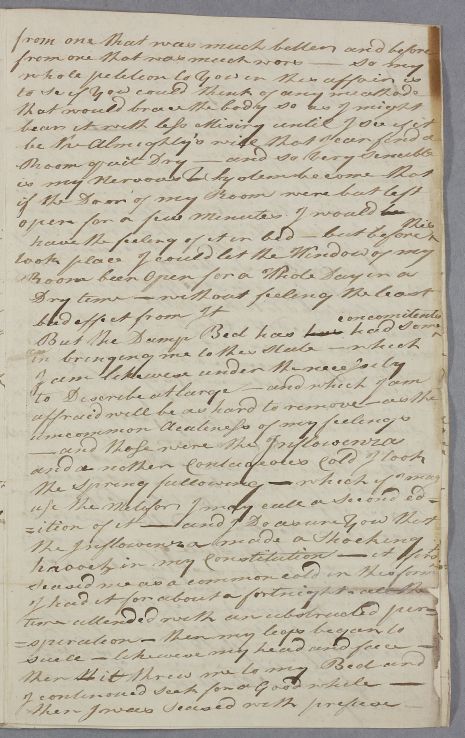 from one that was much better and before
from one that was much wors — so my
whole petition to You in this affair is
to se if You could think of any methode
that would brace the body so as I might
bear it with less Misiry until I see if it
be the Almighty's will that I can find a
Room quit Dry — and so Very Sencible
is my Nervous Systom become that
if the Door of my Room were but left
open for a few Minutes I would
have the feeling of it in bed — but before this
took place I could let the Window of my
Room been Open for a Whole Day in a
Dry time — without feeling the least
bad effect from It
But the Damp Bed has had some concomitents
in bringing me to this State — which
I am likewise under the necessity
to Describe at large — and which I am
affraid will be as hard to remove — as the
uncommon dealness of my feelings
— and those were the Influenza
and a nother Contageous Cold I took
the Spring following — which if I may
use the Metefor I may call a second ed=
=ition of it — and I Do asure You that
the Influenza made a Shocking
havock in my Constitution — it first
seased me as a common cold in this form
I had it for about a fortnight all the
time attended with an obstructed per=
=spiration — then my legs began to
suell — likewise my head and face —
then it threw me to my Bed and
I continoued seek for a Good while —
then I was seased with profuse —